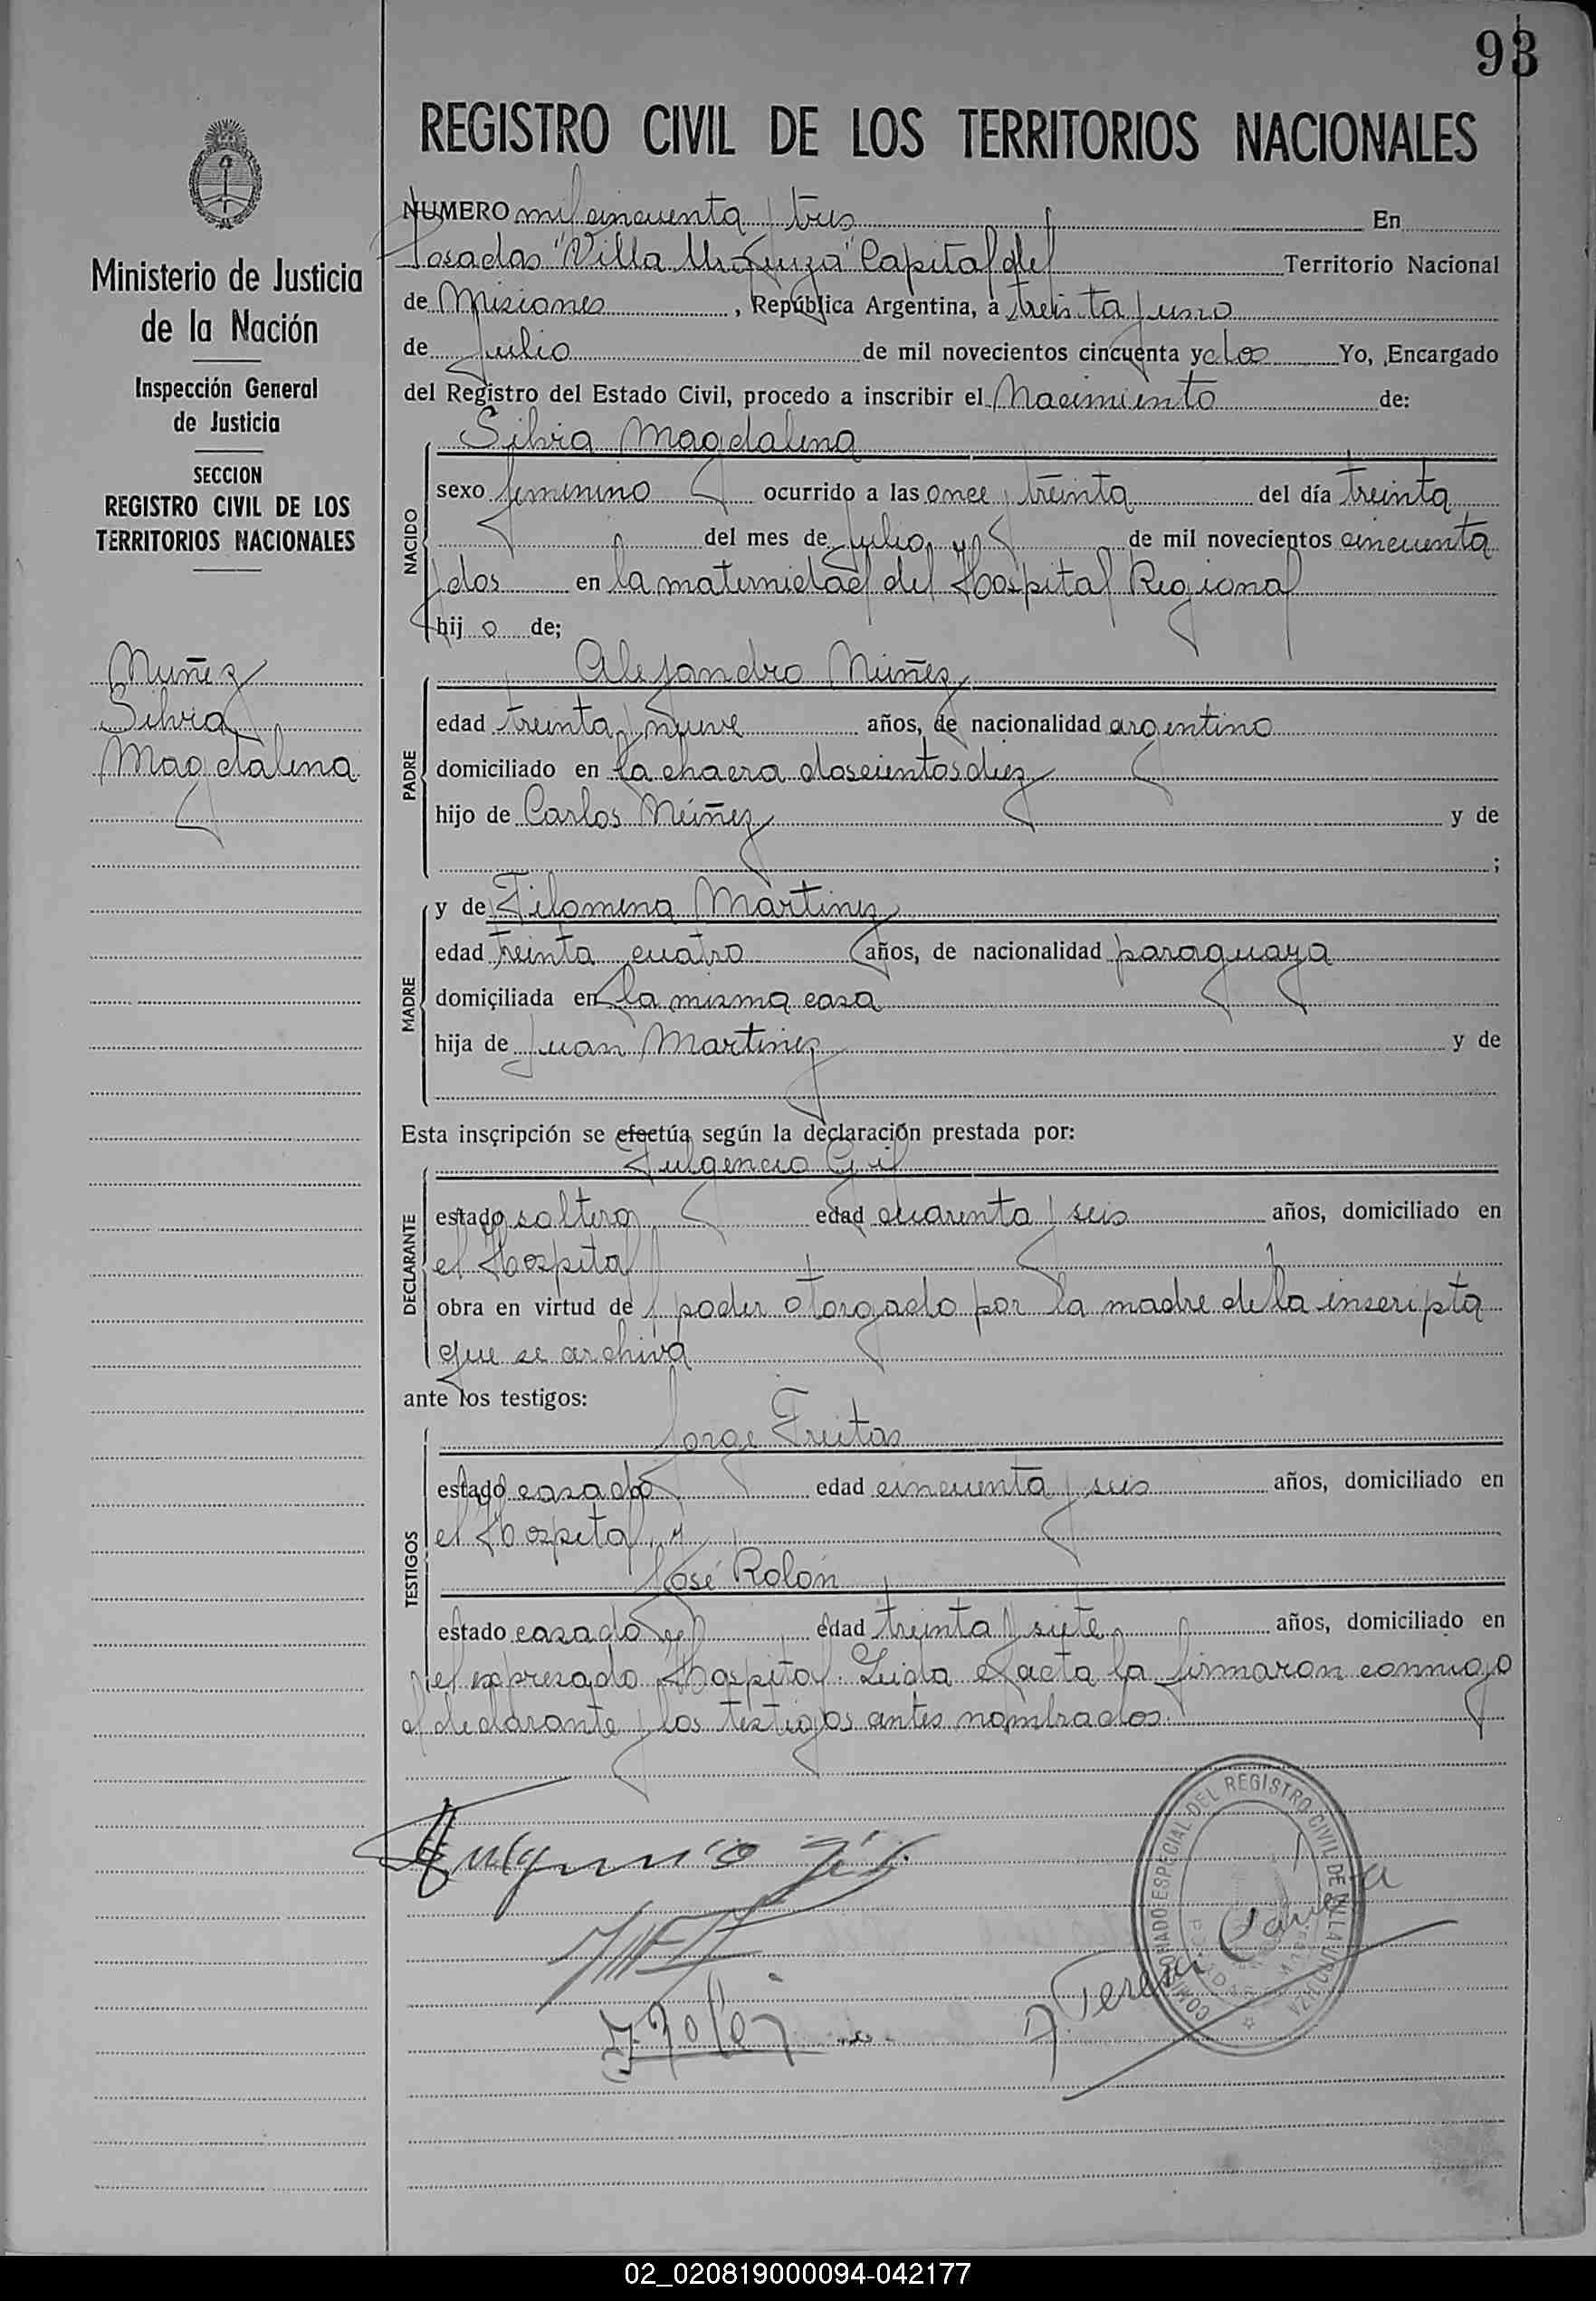 93
REGISTRO CIVIL DE LOS TERRITORIOS NACIONALES
Ministerio de Justicia
de la Nación
Inspección General
de Justicia
SECCION
REGISTRO CIVIL DE LOS
TERRITORIOS NACIONALES
Nuñez
Silvia
Magdalena
NUMERO mil cincuenta y tres En
Posadas "Villa Urquiza" Capital del Territorio Nacional
de Misiones, República Argentina, a treinta y uno
de Julio de mil novecientos cincuenta y dos Yo, Encargado
del Registro del Estado Civil, procedo a inscribir el Nacimiento de:
NACIDO
Silvia Magdalena
sexo femenino ocurrido a las once y treinta del día treinta
del mes de Julio de mil novecientos cincuenta
y dos en la maternidad del Hospital Regional
hij o de;
PADRE
Alejandro Núñez
edad treinta y nueve años, de nacionalidad argentino
domiciliado en la chacra doscientos diez
hijo de Carlos Núñez y de
;
MADRE
y de Filomena Martinez
edad treinta cuatro años, de nacionalidad paraguaya
domiciliada en la misma casa
hija de Juan Martinez y de
Esta inscripción se efectúa según la declaración prestada por:
DECLARANTE
Fulgencio Gil
estado soltero edad cuarenta y seis años, domiciliado en
el Hospital
obra en virtud de poder otorgado por la madre de la inscripta
que se archiva
ante los testigos:
TESTIGOS
Jorge Freitas
estado casado edad cincuenta y seis años, domiciliado en
el Hospital y
José Rolón
estado casado edad treinta y siete años, domiciliado en
el expresado Hospital. Leida el acta la firmaron conmigo
el declarante y los testigos antes nombrados.
Fulgencio Gil
COMISIONADO ESPECIAL DEL REGISTRO CIVIL DE VILLA URQUIZA
02_020819000094-042177